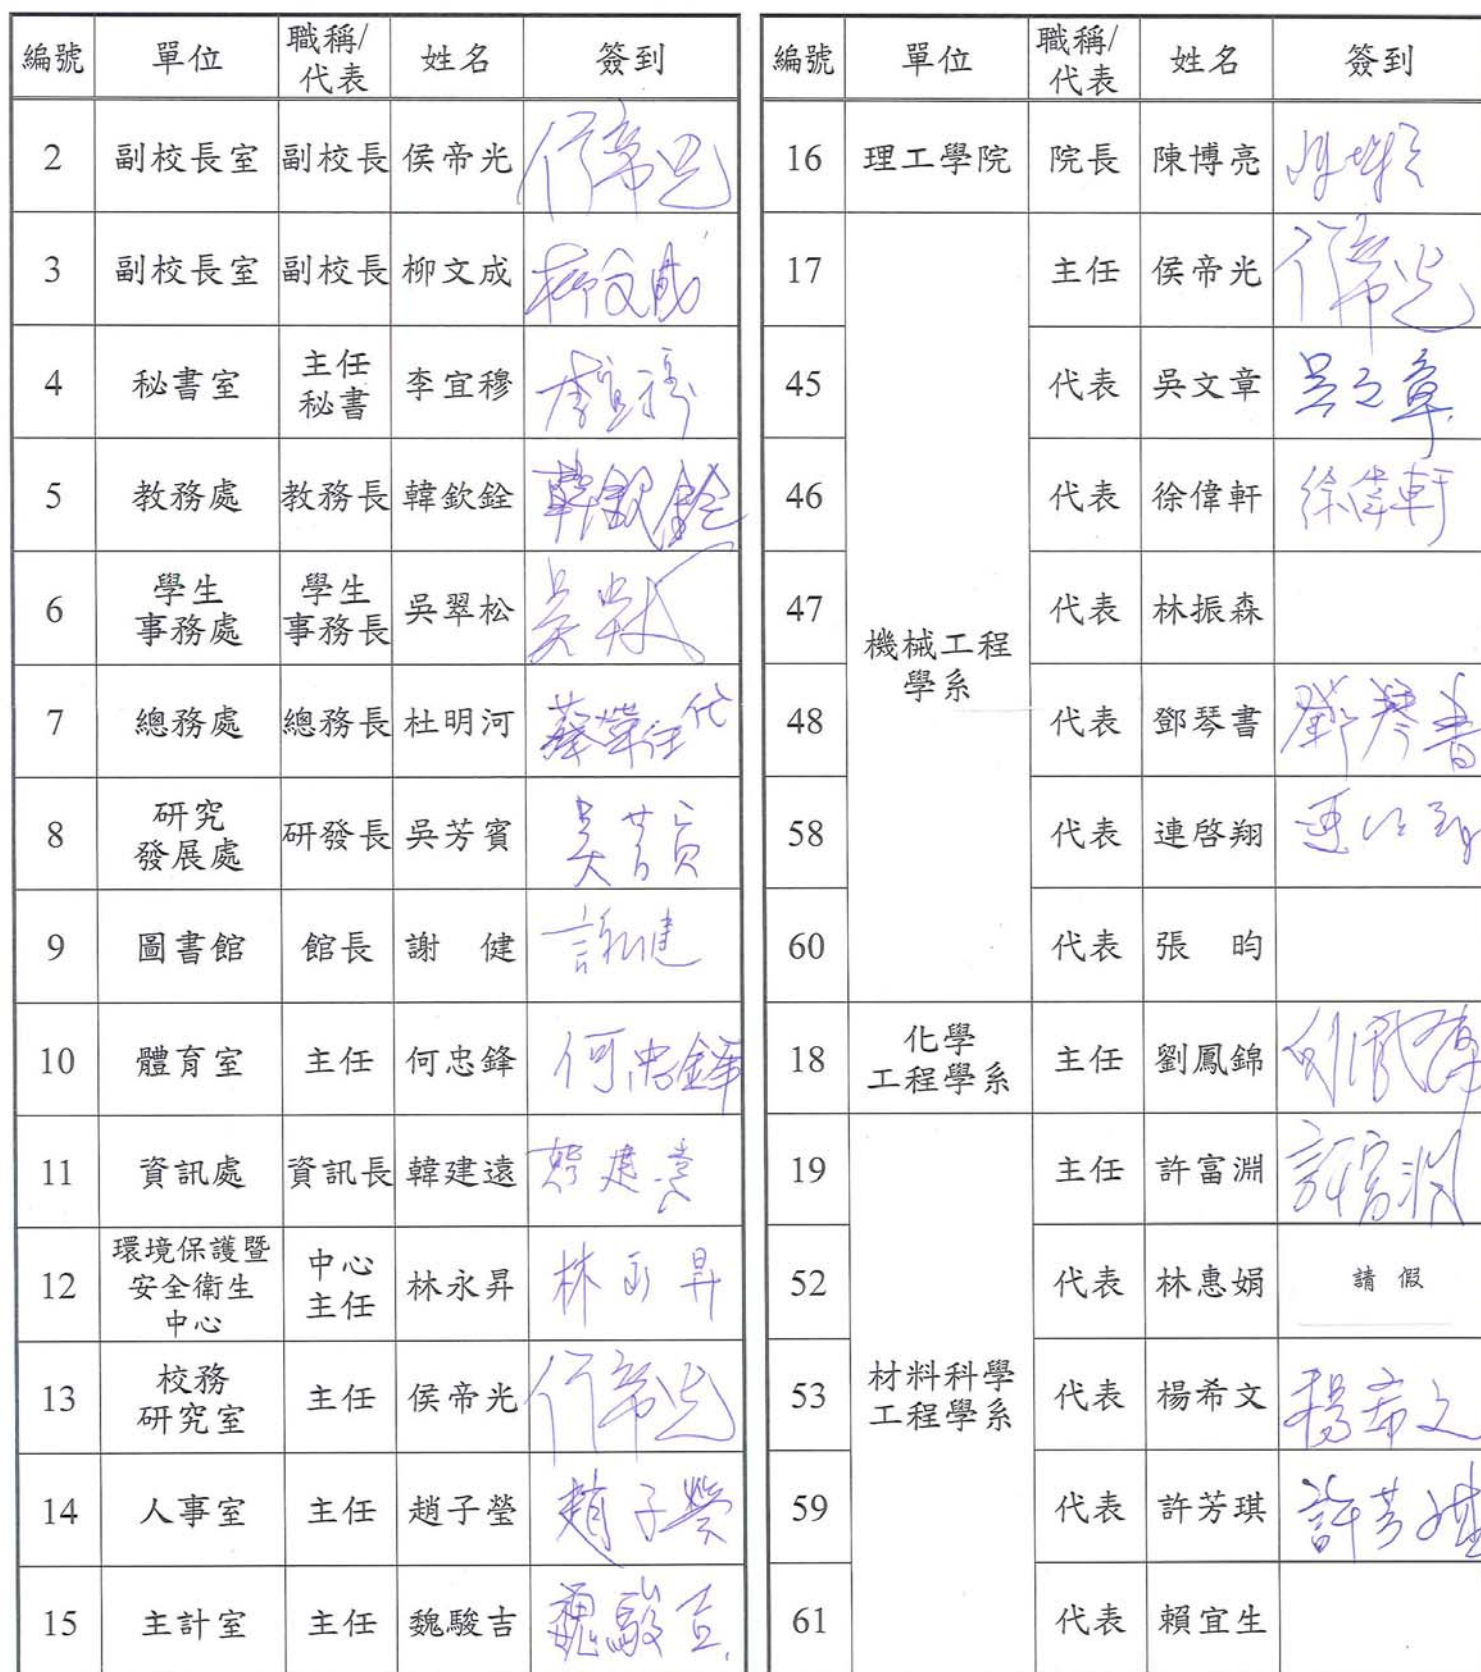 編號 單位 職稱/代表 姓名 簽到
2 副校長室 副校長 侯帝光 侯帝光
3 副校長室 副校長 柳文成 柳文成
4 秘書室 主任秘書 李宜穆 李宜穆
5 教務處 教務長 韓欽銓 韓欽銓
6 學生事務處 學生事務長 吳翠松 吳翠松
7 總務處 總務長 杜明河 蔡榮任代
8 研究發展處 研發長 吳芳賓 吳芳賓
9 圖書館 館長 謝 健 謝健
10 體育室 主任 何忠鋒 何忠鋒
11 資訊處 資訊長 韓建遠 韓建遠
12 環境保護暨安全衛生中心 中心主任 林永昇 林永昇
13 校務研究室 主任 侯帝光 侯帝光
14 人事室 主任 趙子瑩 趙子瑩
15 主計室 主任 魏駿吉 魏駿吉
編號 單位 職稱/代表 姓名 簽到
16 理工學院 院長 陳博亮 陳博亮
17 機械工程學系 主任 侯帝光 侯帝光
45 代表 吳文章 吳文章
46 代表 徐偉軒 徐偉軒
47 代表 林振森
48 代表 鄧琴書 鄧琴書
58 代表 連啓翔 連啓翔
60 代表 張 昀
18 化學工程學系 主任 劉鳳錦 劉鳳錦
19 材料科學工程學系 主任 許富淵 許富淵
52 代表 林惠娟 請假
53 代表 楊希文 楊希文
59 代表 許芳琪 許芳琪
61 代表 賴宜生